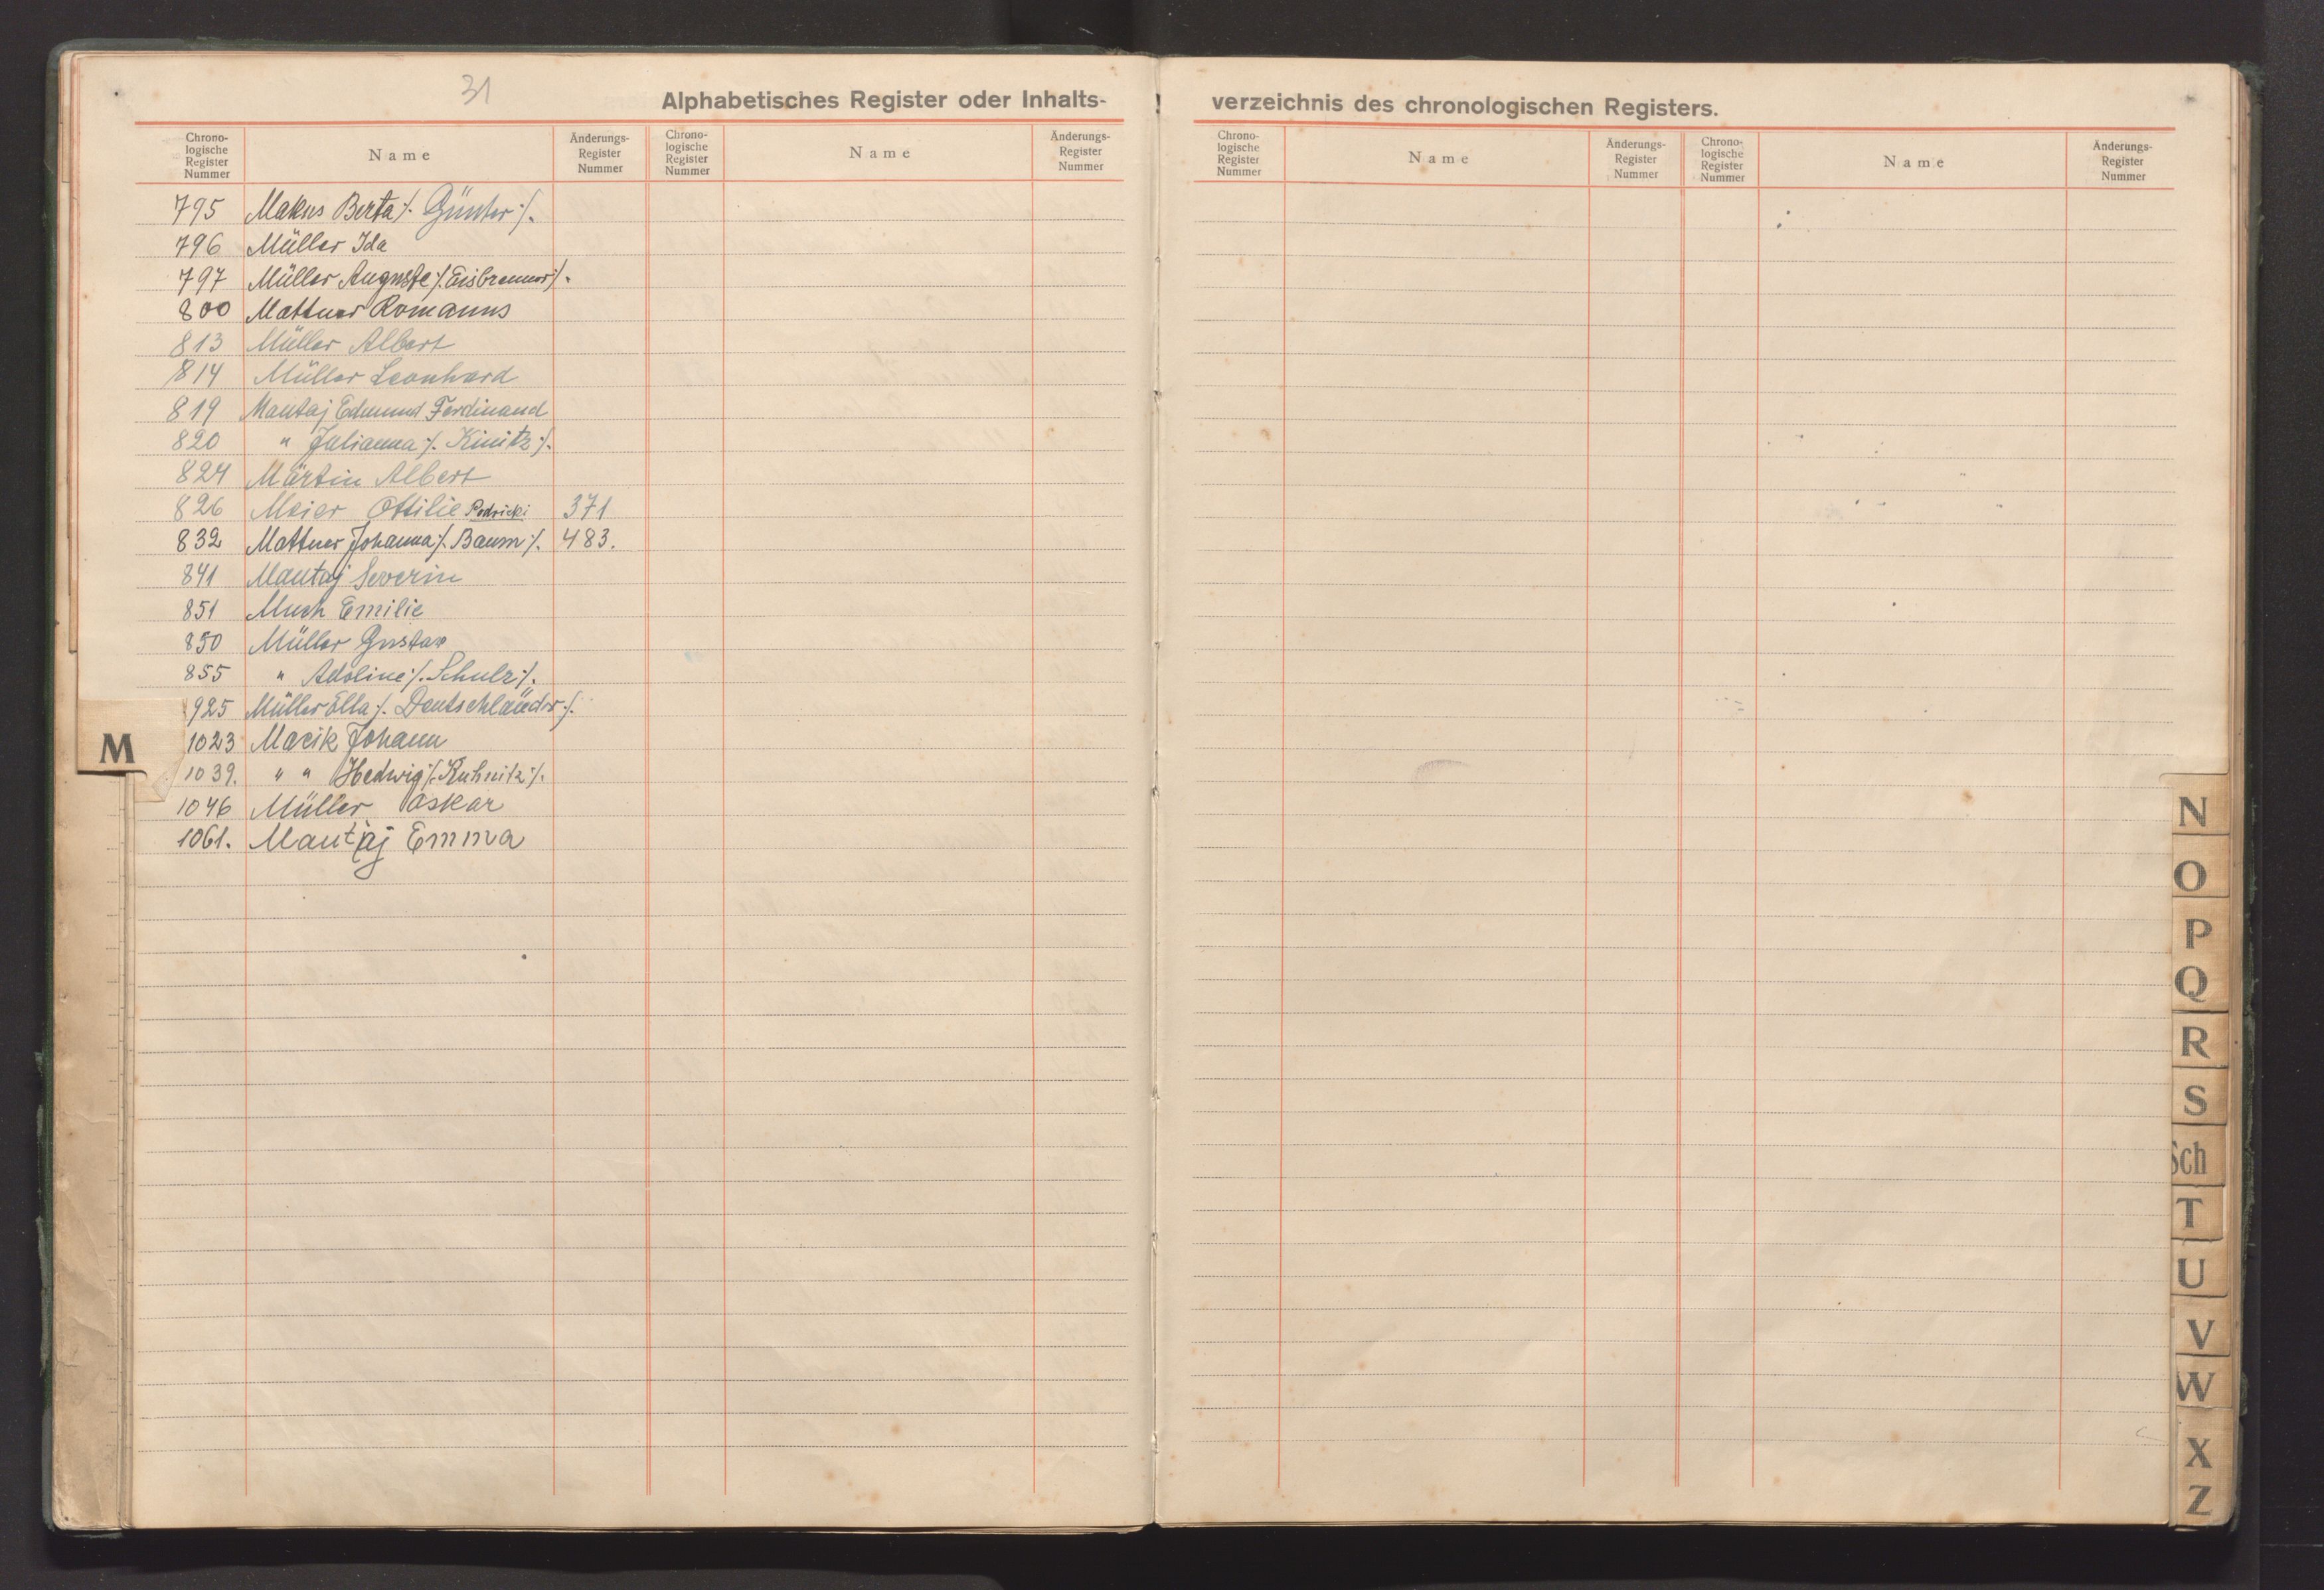 31
Alphabetisches Register oder Inhalts- verzeichnis des chronologischen Registers.
Chrono-logische Register Nummer Name Änderungs-Register Nummer Chrono-logische Register Nummer Name Änderungs-Register Nummer Chrono-logische Register Nummer Name Änderungs-Register Nummer Chrono-logische Register Nummer Name Änderungs-Register Nummer
795 Makus Berta /. Günter :/.
796 Müller Ida
797 Müller Auguste /. Eisbrenner /.
800 Mattner Romanus
813 Müller Albert
814 Müller Leonhard
819 Mantaj Edmund Ferdinand
820 " Julianna /. Kinitz :/.
824 Märtin Albert
826 Meier Ottilie 371
832 Mattner Johanna /. Baum :/. 483.
841 Mantaj Severin
851 Much Emilie
850 Müller Gustav
855 " Adoline :/. Schulz :/.
925 Müller Ella :/. Deutschländer :/.
M
1023 Macik Johann
1039. " " Hedwig /. Kuhnitz :/.
1046 Müller Oskar
1061. Mantaj Emma
N
O
P
Q
R
S
Sch
T
U
V
W
X
Z